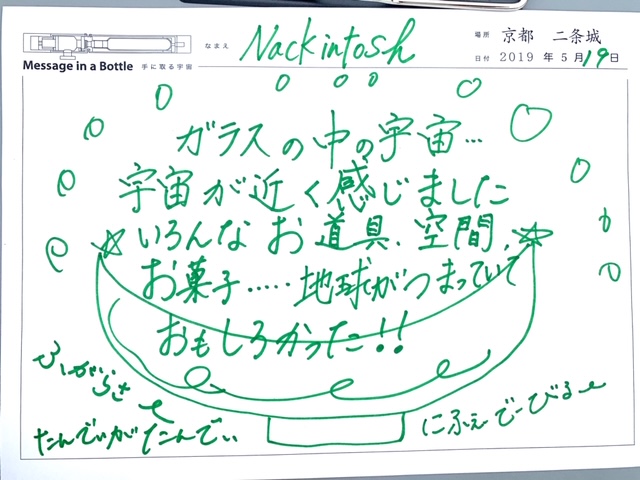 なまえ Nackintosh
場所 京都 二条城
Message in a Bottle 手に取る宇宙
日付 2019 年 5 月 19 日
ガラスの中の宇宙…
宇宙が近く感じました
いろんなお道具、空間、
お菓子‥‥‥地球がつまっていて
おもしろかった!!
たんでぃがたんでぃ
にふぇーでーびるー